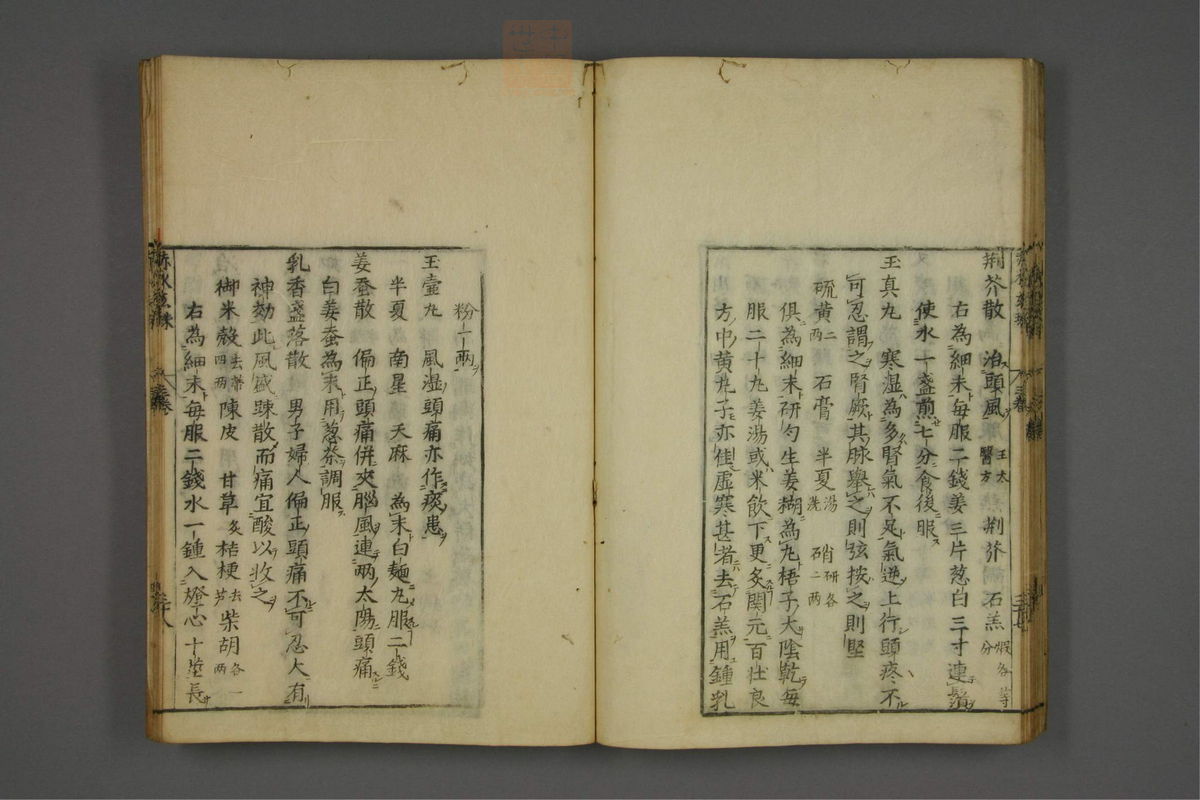 荆芥散 治頭風 王太醫方 荆芥 石羔 煅各等分
右為細末每服二錢姜三片葱白三寸連鬚
使水一盞煎七分食後服
玉真丸 寒湿為多腎氣不足氣逆上行頭疼不
可忍謂之腎厥其脉舉之則弦按之則堅
硫黄二两 石膏 半夏湯洗 硝研各二两
俱為細末研匀生姜糊為丸梧子大陰乾每
服二十丸姜湯或米飲下更灸関元百壮良
方中黄丸子亦佳虚寒甚者去石羔用鍾乳
粉一两
玉壷丸 風湿頭痛亦作痰患
半夏 南星 天麻 為末白麵丸服二錢
姜蚕散 偏正頭痛併夾腦風連两太陽頭痛
白姜蚕為末用葱茶調服
乳香盞落散 男子婦人偏正頭痛不可忍大有
神効此風盛踈散而痛宜酸以收之
御米殻去蒂四两 陳皮 甘草炙 桔梗去芦 柴胡各一两
右為細末每服二錢水一鍾入燈心十莖長